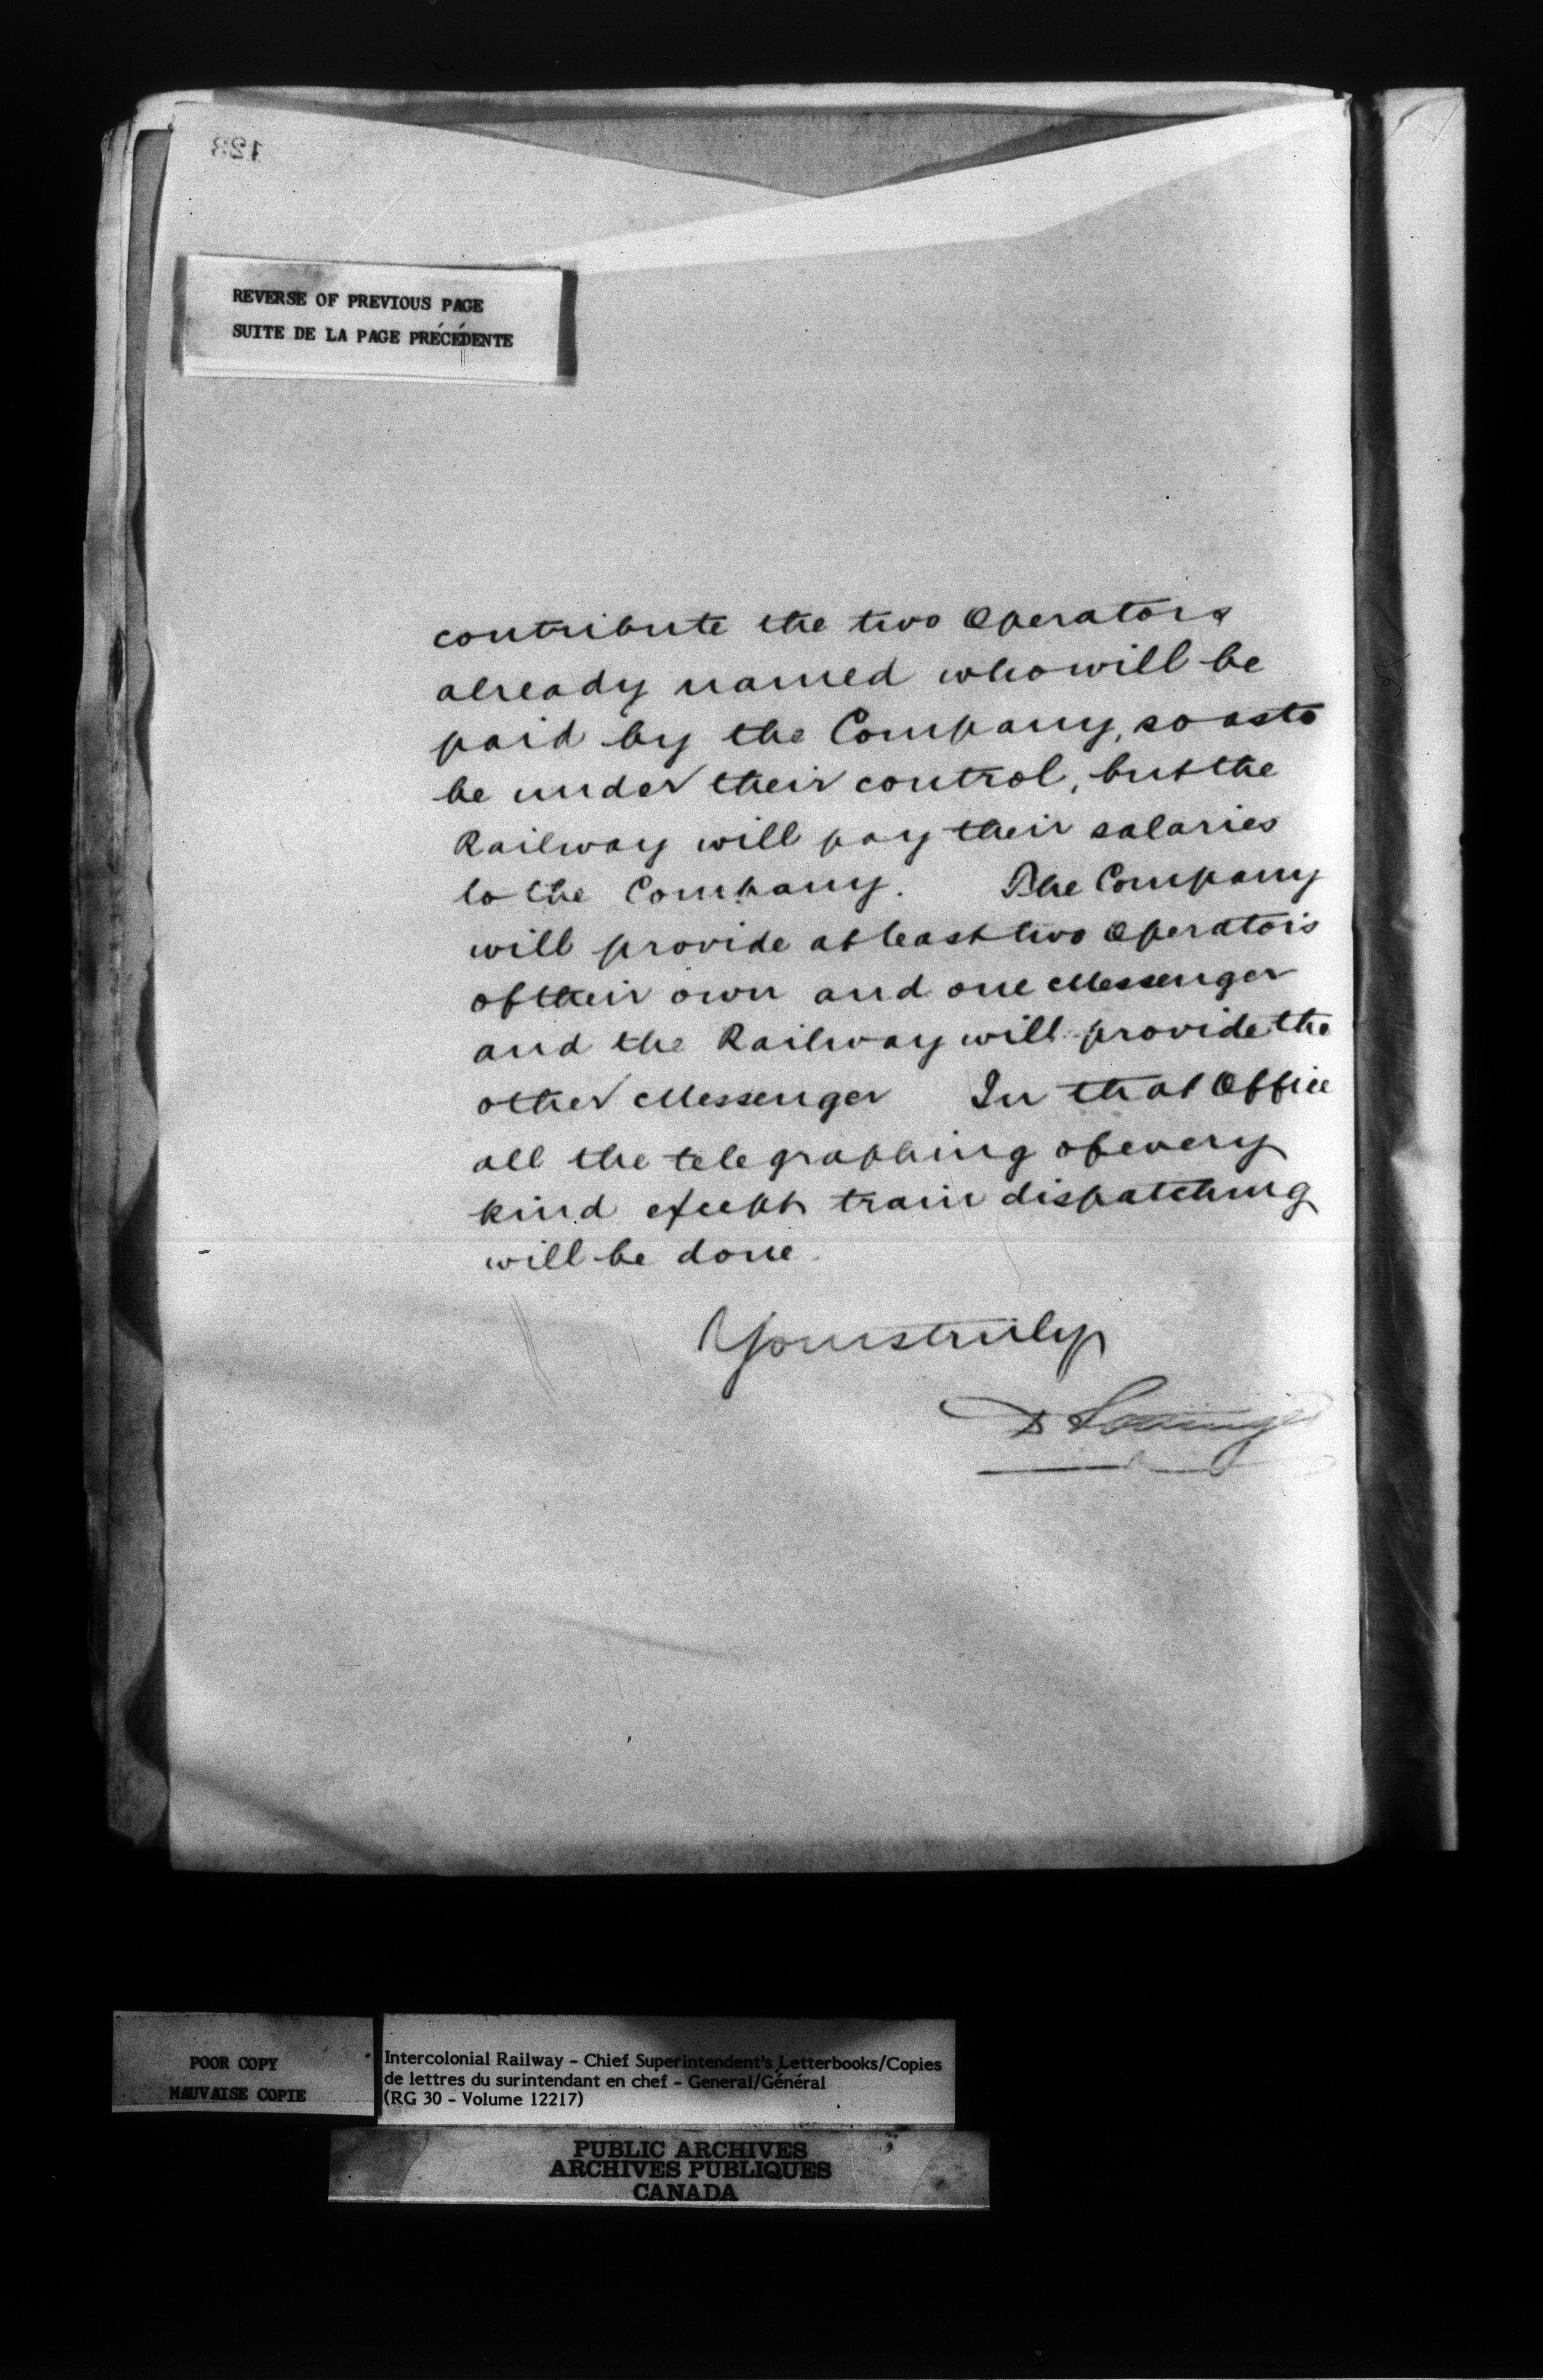 123
REVERSE OF PREVIOUS PAGE
SUITE DE LA PAGE PRÉCÉDENTE
contribute the two Operators
already named who will be
paid by the Company, so as to
be under their control, but the
Railway will pay their salaries
to the Company. The Company
will provide at least two Operators
of their own and one Messenger
and the Railway will provide the
other Messenger In that Office
all the telegraphing of every
kind except train dispatching
will be done.
Yours truly
D Pottinger
POOR COPY
MAUVAISE COPIE
Intercolonial Railway - Chief Superintendent's Letterbooks/Copies
de lettres du surintendant en chef - General/Général
(RG 30 - Volume 12217)
PUBLIC ARCHIVES
ARCHIVES PUBLIQUES
CANADA